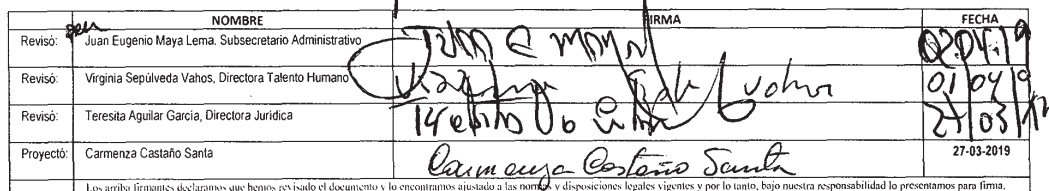 NOMBRE FIRMA FECHA
Revisó: Juan Eugenio Maya Lema. Subsecretario Administrativo 02.04.19
Revisó: Virginia Sepúlveda Vahos, Directora Talento Humano 01/04/19
Revisó: Teresita Aguilar García, Directora Jurídica
Proyectó: Carmenza Castaño Santa Carmenza Castaño Santa 27-03-2019
Los arriba firmantes declaramos que hemos revisado el documento y lo encontramos ajustado a las normas y disposiciones legales vigentes y por lo tanto, bajo nuestra responsabilidad lo presentamos para firma.